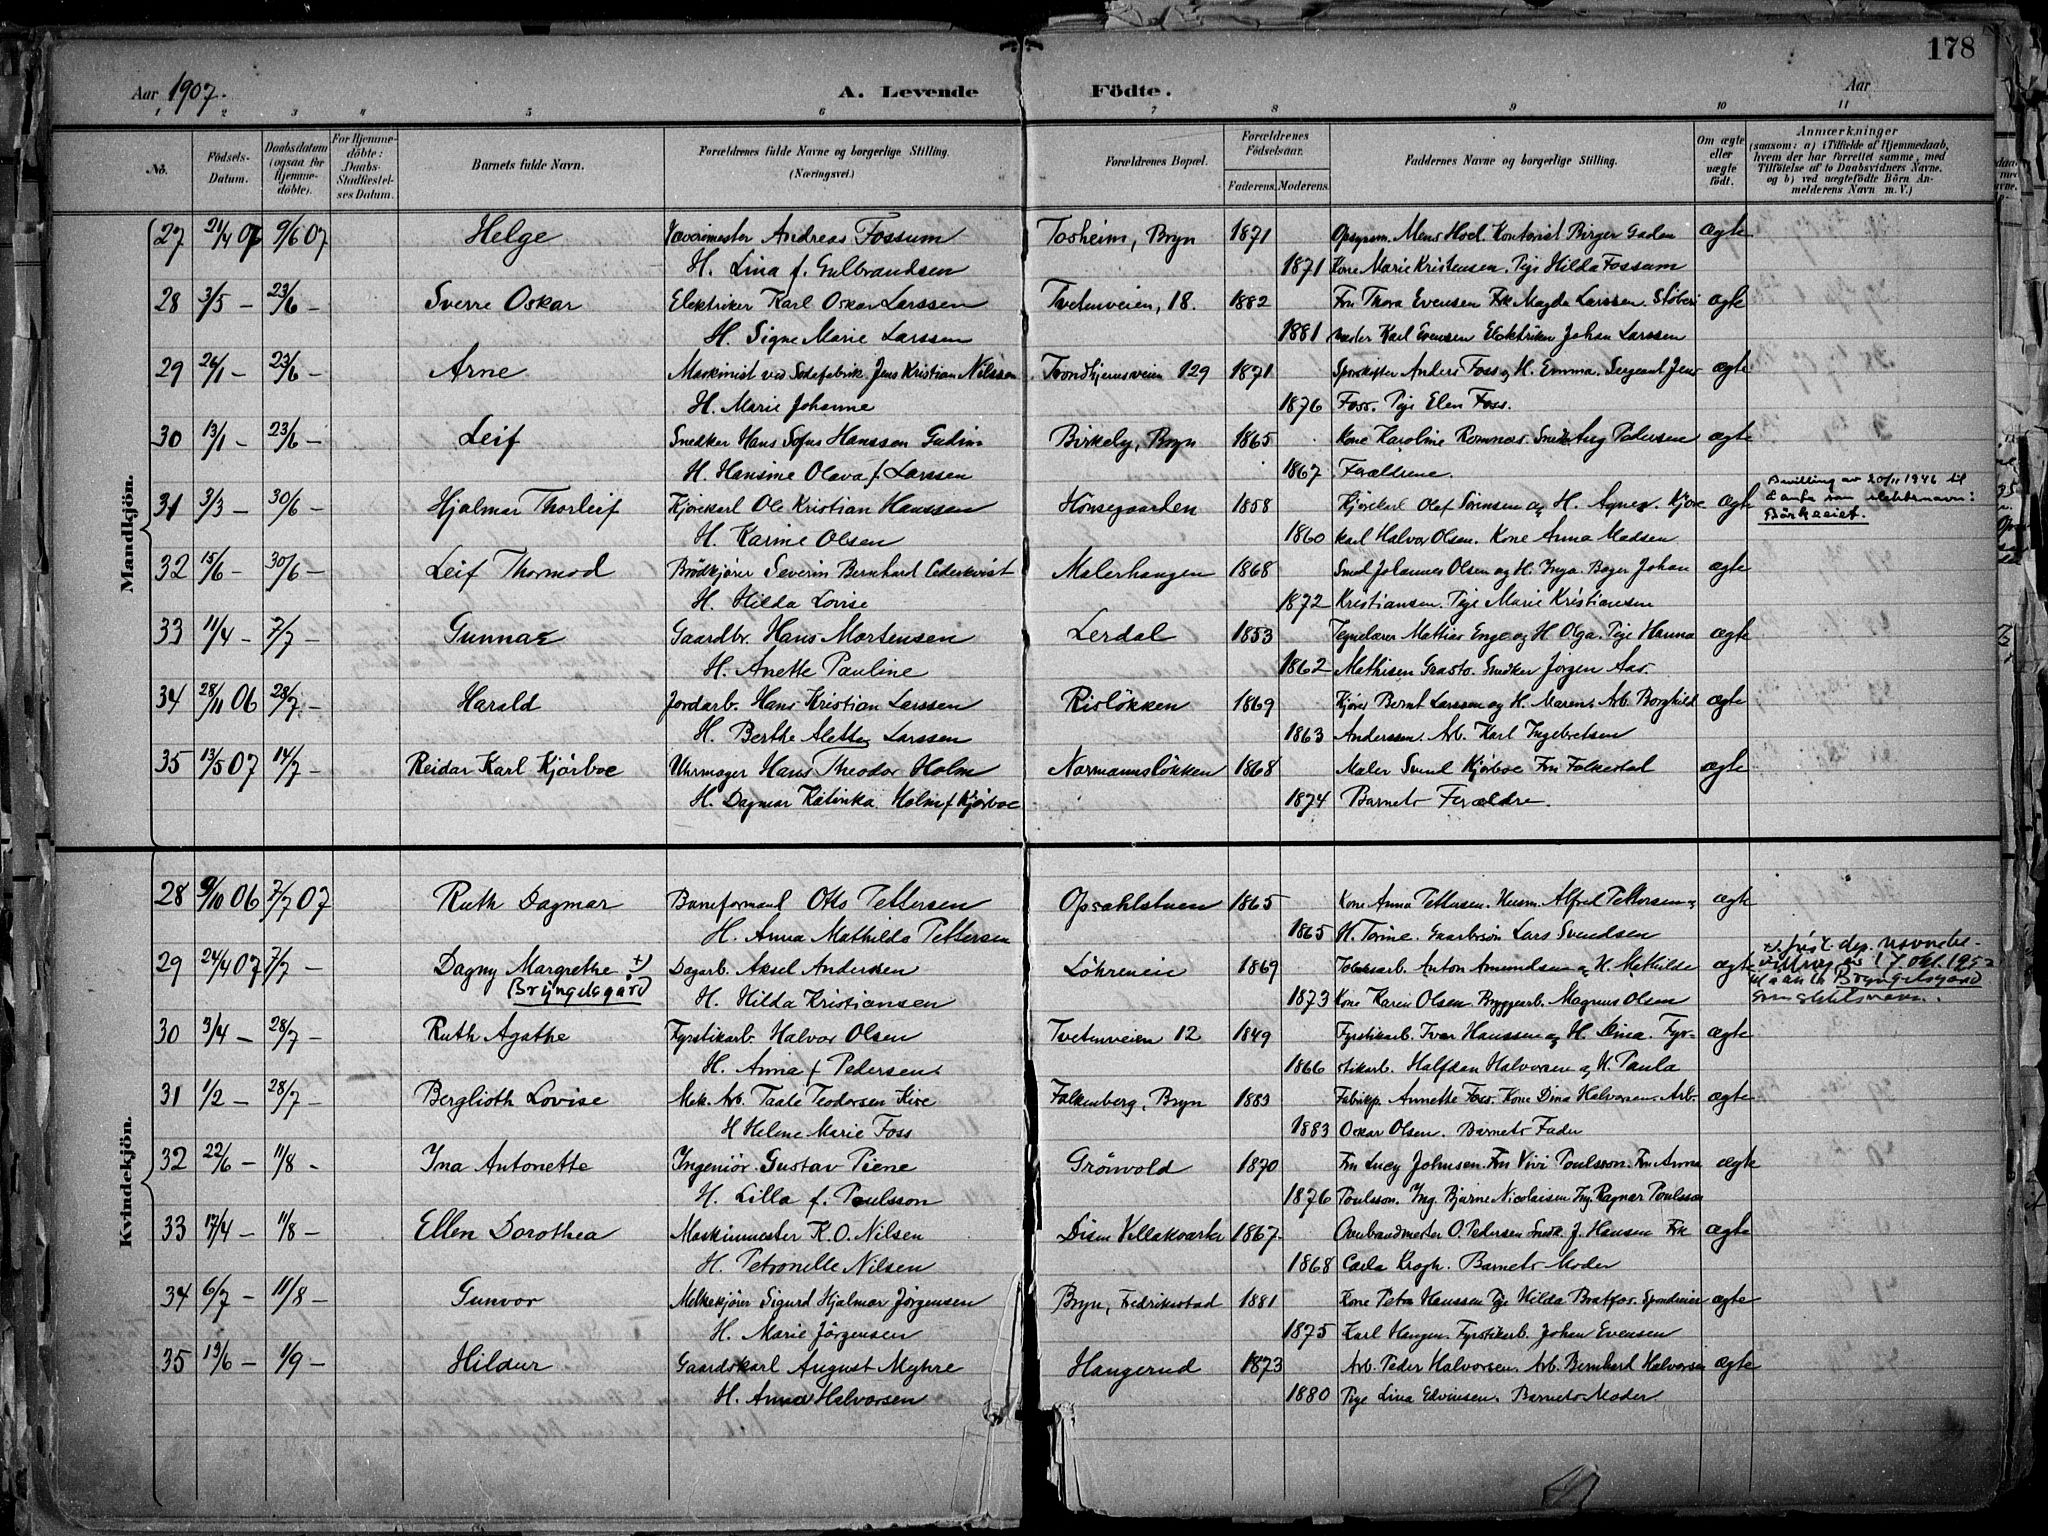 178
Aar 1907. A. Levende Födte. Aar
1 2 3 4 5 6 7 8 9 10 11
No. Födsels-Datum. Daabsdatum (ogsaa for Hjemme-döbte). For Hjemme-döbte: Daabs-Stadfæstel-ses Datum. Barnets fulde Navn. Forældrenes fulde Navne og borgerlige Stilling. (Næringsvei.) Forældrenes Bopæl. Forældrenes Födselsaar. Faderens. Moderens. Faddernes Navne og borgerlige Stilling. Om ægte eller uægte födt. Anmærkninger (saasom: a) i Tilfælde af Hjemmedaab, hvem der har forrettet samme, med Tilföielse af to Daabsvidners Navne, og b) ved uægtefödte Börn An-melderens Navn m. V.)
Mandkjön.
27 21/4 07 9/6 07 Helge Væverimester Andreas Fossum Tosheim, Bryn 1871 Opsynsm. Mens Hoel Kontorist Birger Gadan ægte
H. Lina f. Gulbrandsen 1871 Kone Marie Kristensen. Pige Hilda Fossum
28 3/5 – 23/6 – Sverre Oskar Elektriker Karl Oskar Larssen Tvetenveien, 18. 1882 Fru Thora Evensen Frk Magda Larssen. Stöberi ægte
H. Signe Marie Larssen 1881 mester Karl Evensen Elektriker Johan Larssen
29 26/1 – 23/6 – Arne Maskinist ved Sodafabrik. Jens Kristian Nilssen Trondhjemsveien 129 1871 Sporskifter Anders Foss og H. Emma. Sergeant Jens ægte
H. Marie Johanne 1876 Foss. Pige Elen Foss.
30 13/1 – 23/6 – Leif Snedker Hans Sofus Hanssen Gudim Birkely, Bryn 1865 Kone Karoline Romnæs. Snedk. Aug Pedersen ægte
H. Hansine Olava f. Larssen 1867 Forældrene
31 3/3 – 30/6 – Hjalmar Thorleif Kjörekarl Ole Kristian Hanssen Hönsegaarden 1858 Kjörekarl Olaf Sörensen og H. Agnes. Kjöre ægte Bevilling av 20/11 1946 til å anta som slektsnavn: Börkeeiet.
H. Karine Olsen 1860 karl Halvor Olsen. Kone Anna Madsen
32 15/6 – 30/6 – Leif Thormod Brödkjörer Severin Bernhard Cederkvist Malerhaugen 1868 Smed Johannes Olsen og H. Inga. Bager Johan ægte
H. Hilda Lovise 1872 Kristiansen. Pige Marie Kristiansen
33 11/4 – 7/7 – Gunnar Gaardbr. Hans Mortensen Lerdal 1853 Tegnelærer Mathias Enge og H Olga. Pige Hanna ægte
H. Anette Pauline 1862 Mathisen Snedker Jörgen Aas.
34 28/11 06 28/7 – Harald Jordarb. Hans Kristian Larssen Rislökken 1869 Kjörer Bernt Larssen og H. Maren. Arb Borghild ægte
H. Berthe Alette Larssen 1863 Anderssen. Arb. Karl Ingebretsen
35 13/5 07 14/7 – Reidar Karl Kjörboe Uhrmager Hans Theodor Holm Normannslökken 1868 Maler Svend Kjörboe Fru Falkestad ægte
H. Dagmar Katinka Holm f. Kjörboe 1874 Barnets Forældre.
Kvindekjön.
28 9/10 06 7/7 07 Ruth Dagmar Baneformand Otto Pettersen Opsahlstuen 1865 Kone Anna Pettersen. Husm. Alfred Pettersen og ægte
H. Anna Mathilde Pettersen 1865 H. Torine. Gaardssön Lars Svendsen
29 24/4 07 7/7 – Dagny Margrethe +) (Bryngelsgård) Dagarb. Aksel Andersen Löhrenveien 1869 Anton Amundsen og H. Mathilde ægte +) Just. dep. navnebe-villing av 17. okt. 1952 til å anta Bryngelsgård som slektsnavn.
H. Hilda Kristiansen 1873 Kone Karen Olsen. Byggearb. Magnus Olsen
30 3/4 – 28/7 – Ruth Agathe Fyrstikarb. Halvor Olsen Tvetenveien 12 1849 Fyrstikarb. Ivar Hanssen og H. Dina. Fyr- ægte
H. Anna f Pedersen 1866 stikarb. Halfdan Halvorsen og H Paula
31 1/2 – 28/7 – Berglioth Lovise Mek. Arb. Taale Teodorsen Kire Falkenberg, Bryn 1883 Fabrikp. Annette Foss. Kone Dina Halvorsen. Arb. ægte
H Helene Marie Foss 1883 Oskar Olsen. Barnets Fader
32 22/6 – 11/8 – Ina Antonette Ingeniör Gustav Piene Grönvold 1870 Fru Lucy Johnsen. Fru Vivi Poulsson. Fru Anna ægte
H. Lilla f. Poulsson 1876 Poulsson. Ing Bjarne Nicolaisen Ing. Ragnar Poulsson
33 17/4 – 11/8 – Ellen Dorothea Maskinmester K. O. Nilsen Disen Villakvarter 1867 Overbrandmester O. Pedersen Snedk. J. Hansen Frk ægte
H. Petronelle Nilsen 1868 Carla Krogh. Barnets Moder
34 6/7 – 11/8 – Gunvor Melkekjörer Sigurd Hjalmar Jörgensen Bryn, Fredrikstad 1881 Kone Petra Hanssen Pige Hilda Bratfos. ægte
H. Marie Jörgensen 1875 Karl Haugen. Fyrstikarb. Johan Evensen
35 13/6 – 1/9 – Hildur Gaardskarl August Myhre Haugerud 1873 Arb. Peder Halvorsen. Arb. Bernhard Halvorsen ægte
H. Anna Halvorsen 1880 Pige Lina Edvinsen. Barnets Moder.